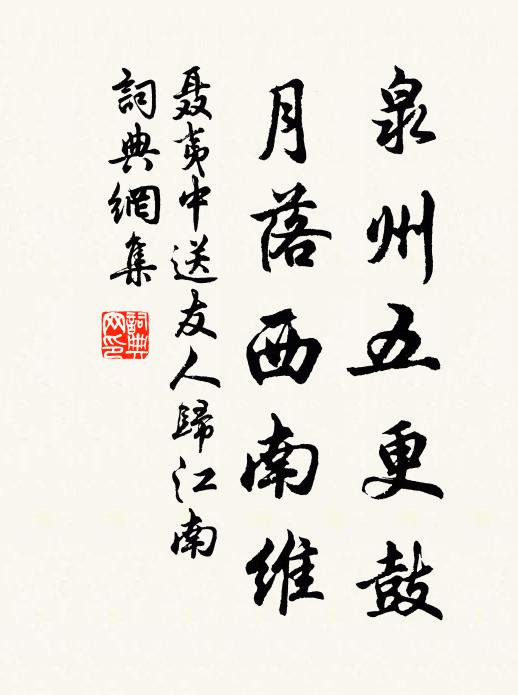 泉州五更鼓
月落西南維
聂夷中送友人歸江南
詞典網集
詞典网印